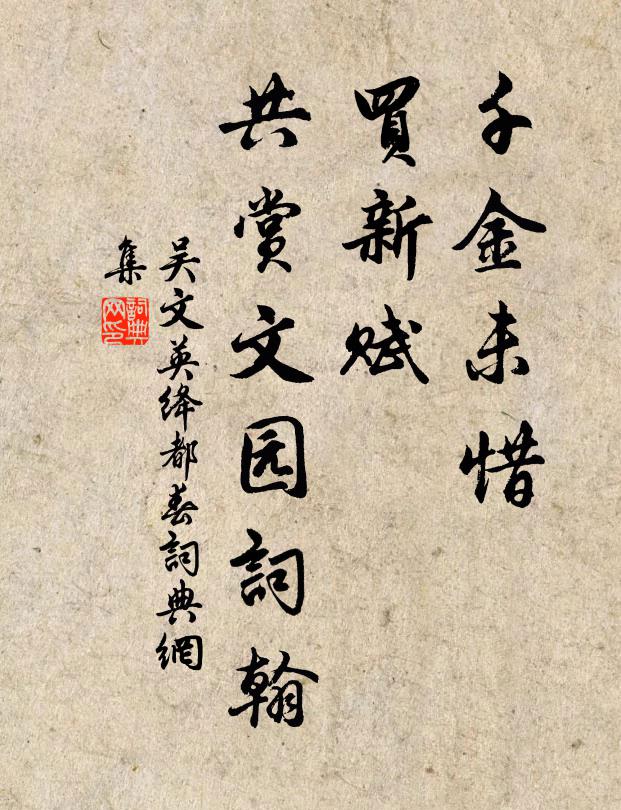 千金未惜
買新賦
共賞文园詞翰
吴文英绛都春詞典網
集
詞典网印